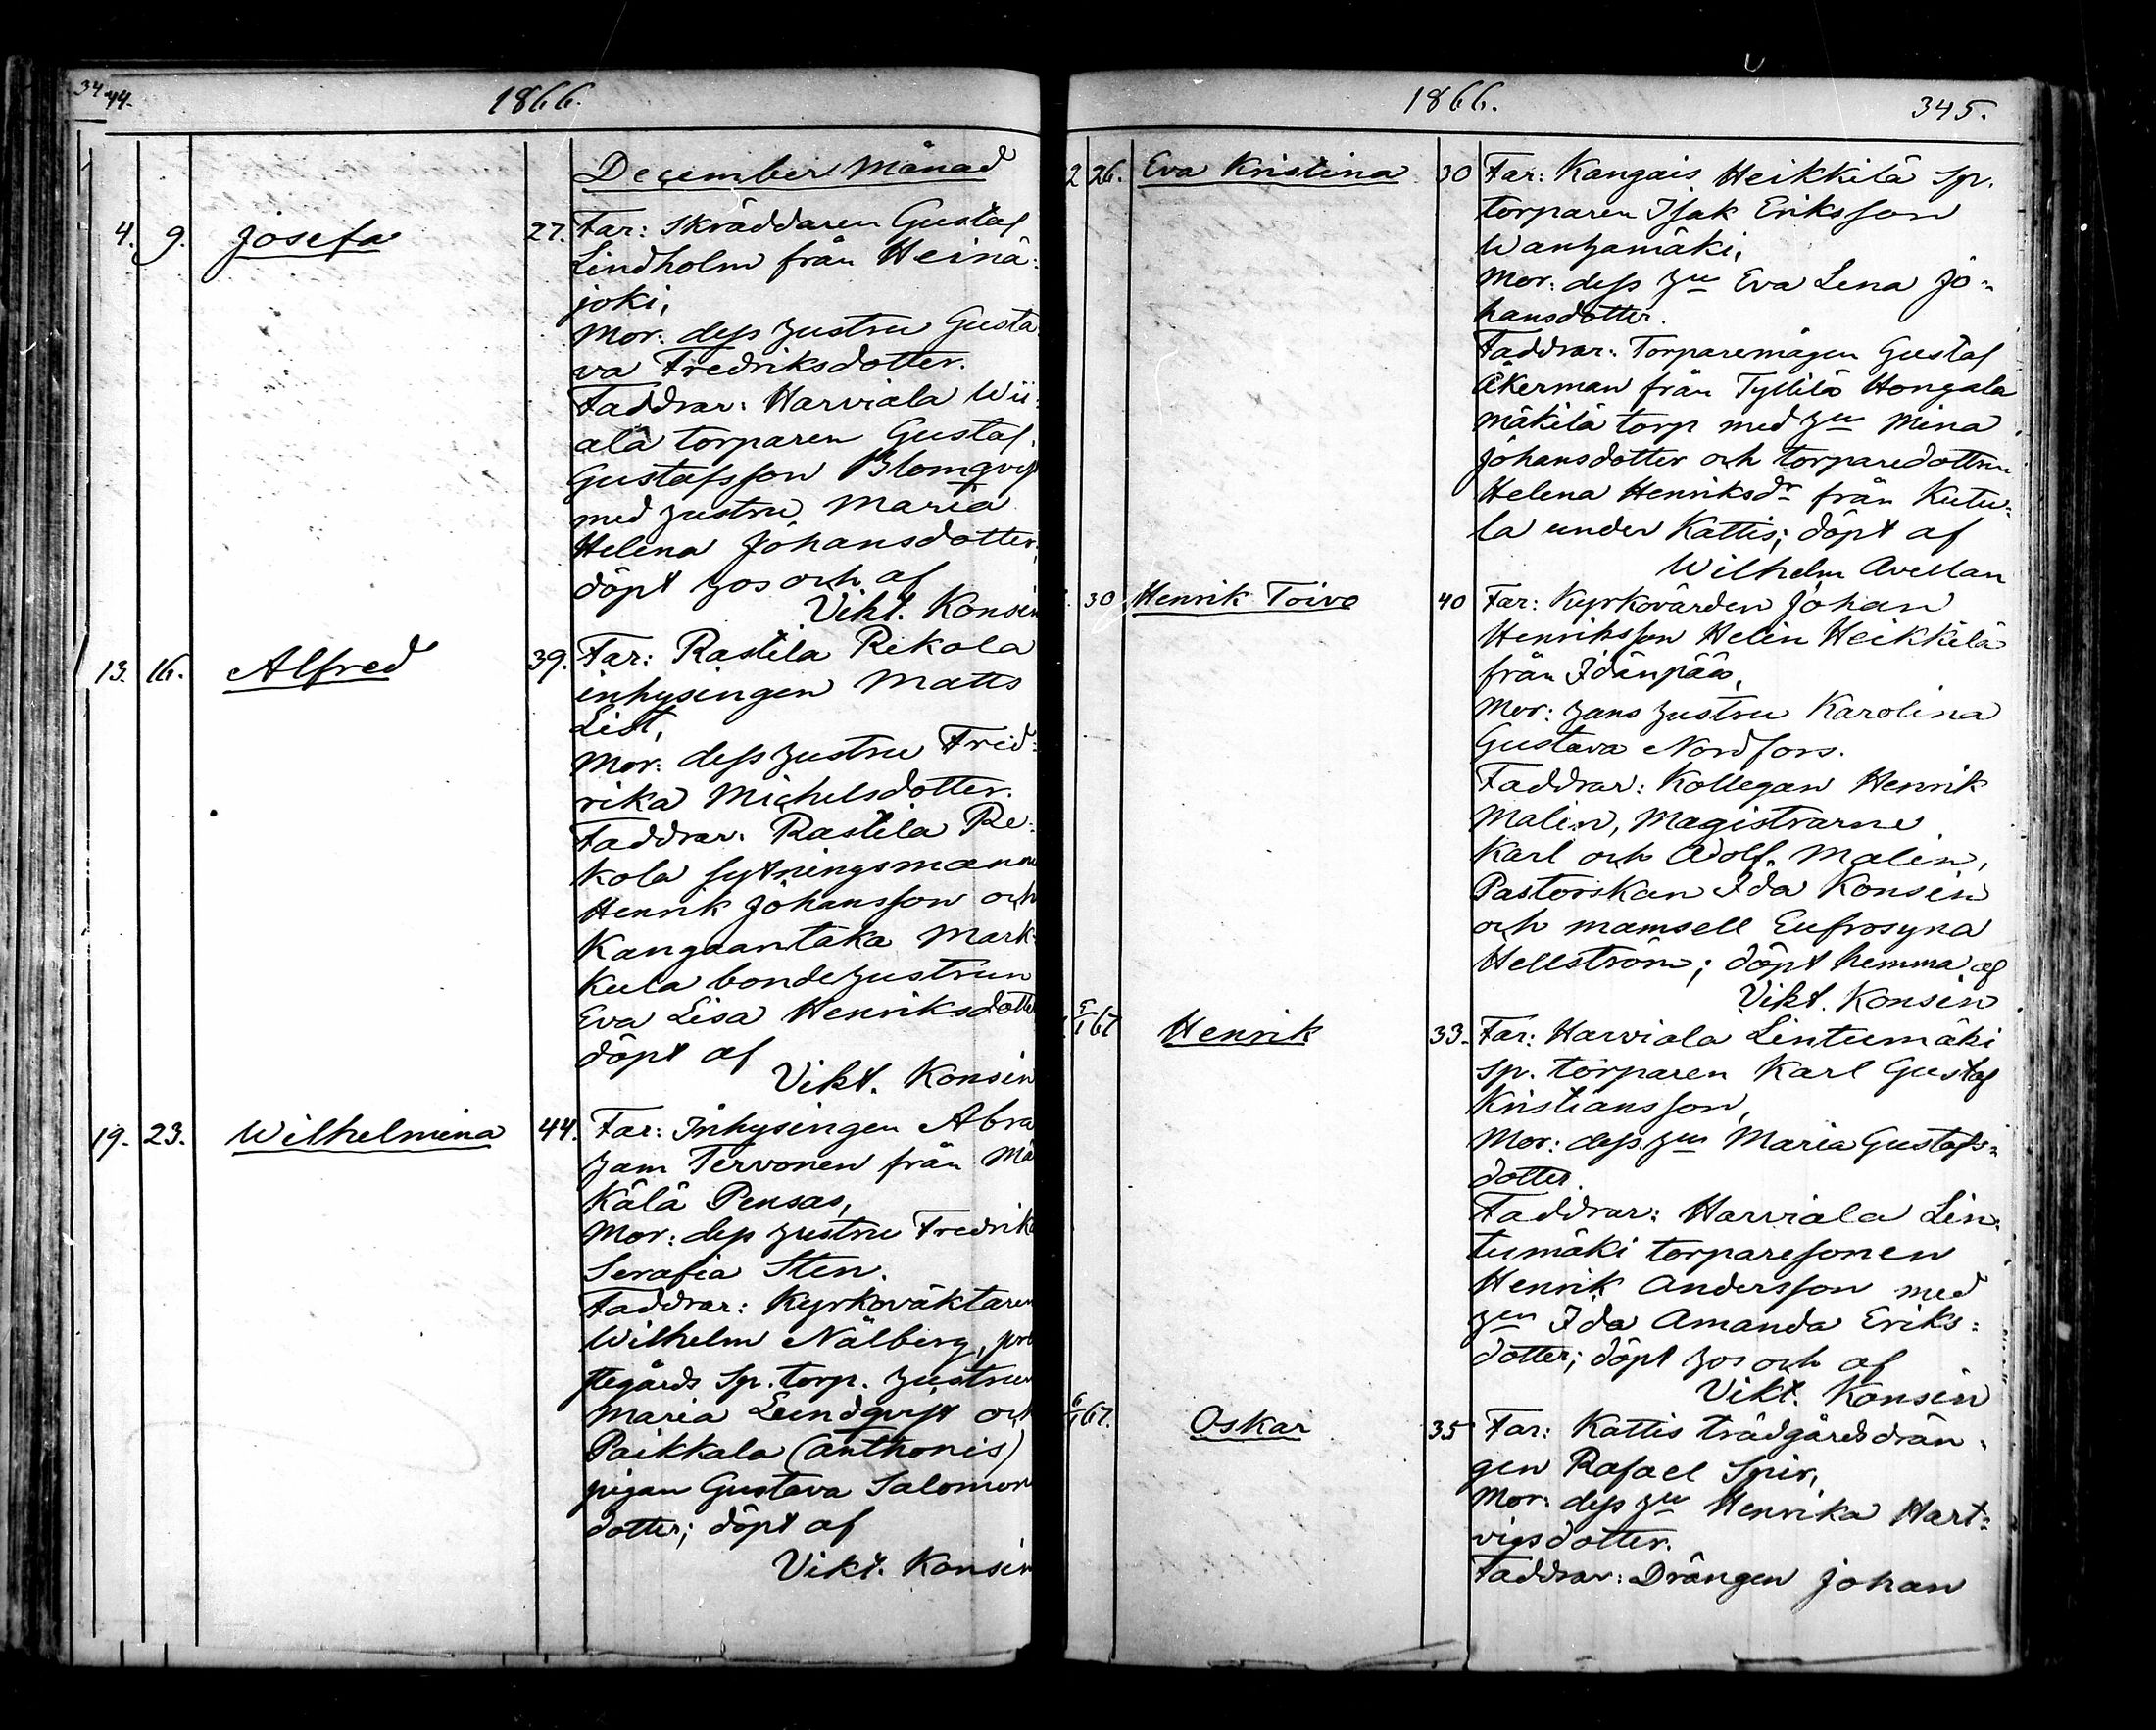 344.
1866.
December Månad
4. 9. Josefa 27. Far: Skräddaren Gustaf
Lindholm från Heinä=
joki,
Mor: dess hustru Gusta
va Fredriksdotter.
Faddrar: Harviala Wii=
ala torparen Gustaf
Gustafsson Blomqvist
med hustru Maria
Helena Johansdotter;
döpt hos och af
Vikt. Konsin
13. 16. Alfred 39. Far: Rastila Rekola
inhysingen Matts
List,
Mor: dess hustru Fred=
rika Michelsdotter.
Faddrar: Rastila Re=
kola sytningsmannen
Henrik Johansson och
Kangaantaka Mark=
kula bondehustrun
Eva Lisa Henriksdotter
döpt af
Vikt. Konsin
19. 23. Wilhelmina 44. Far: Inhysingen Abra
ham Tervonen från Mä
kälä Pensas,
Mor: dess hustru Fredrika
Serafia Sten.
Faddrar: Kyrkoväktaren
Wilhelm Nälberg, pre
stegårds Sp. torp. hustrun
Maria Lundqvist och
Paikkala (Anthonis)
pigan Gustava Salomons
dotter; döpt af
Vikt. Konsin
1866.
345.
2 26. Eva Kristina 30 Far: Kangais Heikkilä Sp.
torparen Isak Eriksson
Wanhamäki,
Mor: dess hu Eva Lena Jo=
hansdotter.
Faddrar: Torparemågen Gustaf
Åkerman från Tyllilä Hongala
Mäkilä torp med hu Mina
Johansdotter och torparedottren
Helena Henriksdr från Kutu=
la under Kattis; döpt af
Wilhelm Avellan
30 Henrik Toivo 40 Far: Kyrkovärden Johan
Henriksson Helin Heikkilä
från Idänpää,
Mor: hans hustru Karolina
Gustava Nordfors.
Faddrar: Kollegan Henrik
Malin, Magistrarne
Karl och Adolf Malin,
Pastorskan Ida Konsin
och mamsell Eufrosyna
Hellström; döpt hemma af
Vikt. Konsin
5/1 67 Henrik 33. Far: Harviala Lintumäki
Sp. torparen Karl Gustaf
Kristiansson,
Mor: dess hu Maria Gustafs=
dotter.
Faddrar: Harviala Lin=
tumäki torparesonen
Henrik Andersson med
hu Ida Amanda Eriks=
dotter; döpt hos och af
Vikt. Konsin
6/1 67. Oskar 35 Far: Kattis trädgårdsdrän=
gen Rafael Spir,
Mor: dess hu Henrika Hart=
vigsdotter.
Faddrar: Drängen Johan